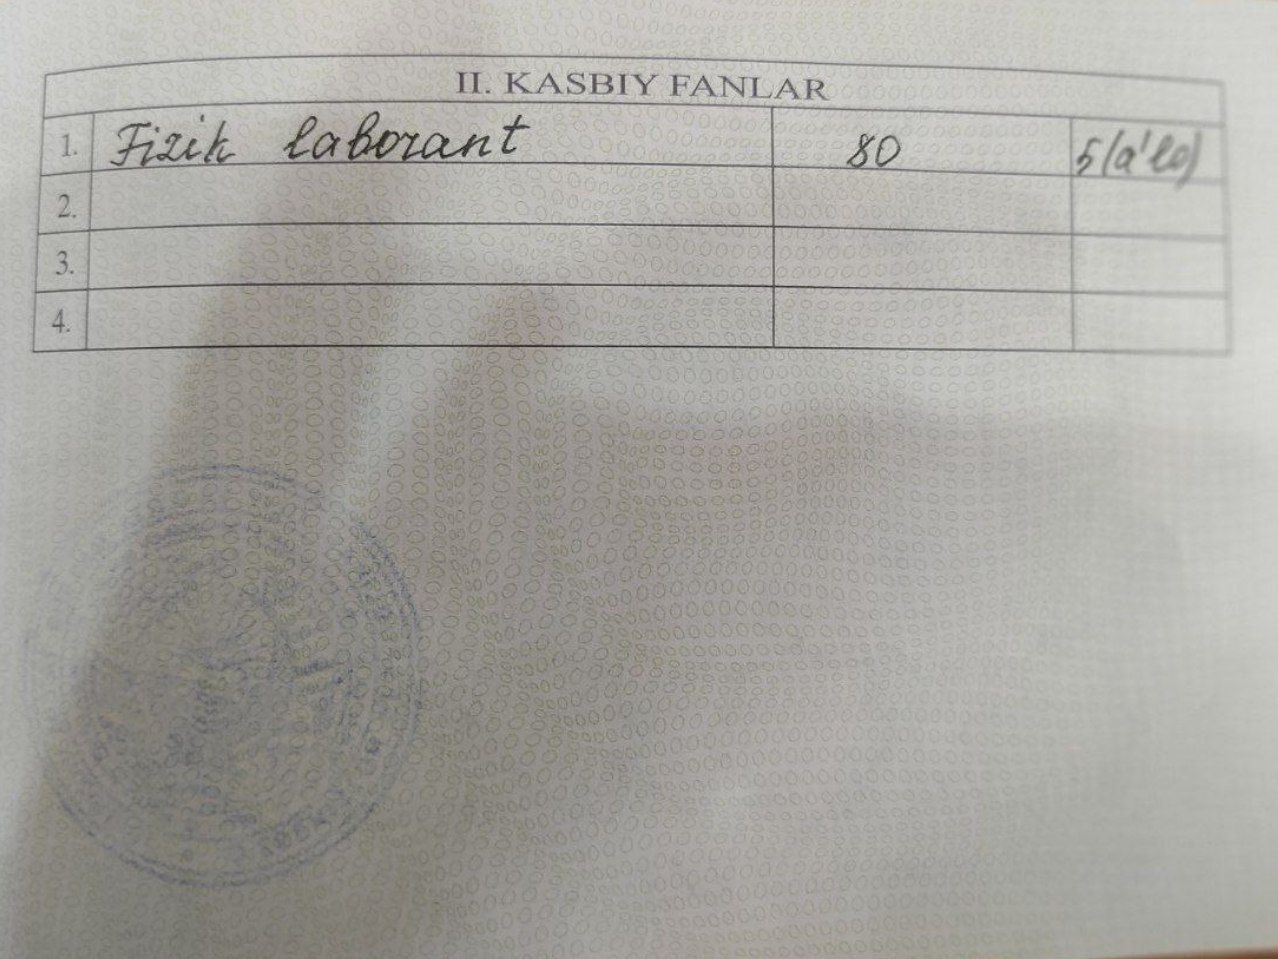 II. KASBIY FANLAR
1. Fizik laborant 80 5 (a'lo)
2.
3.
4.